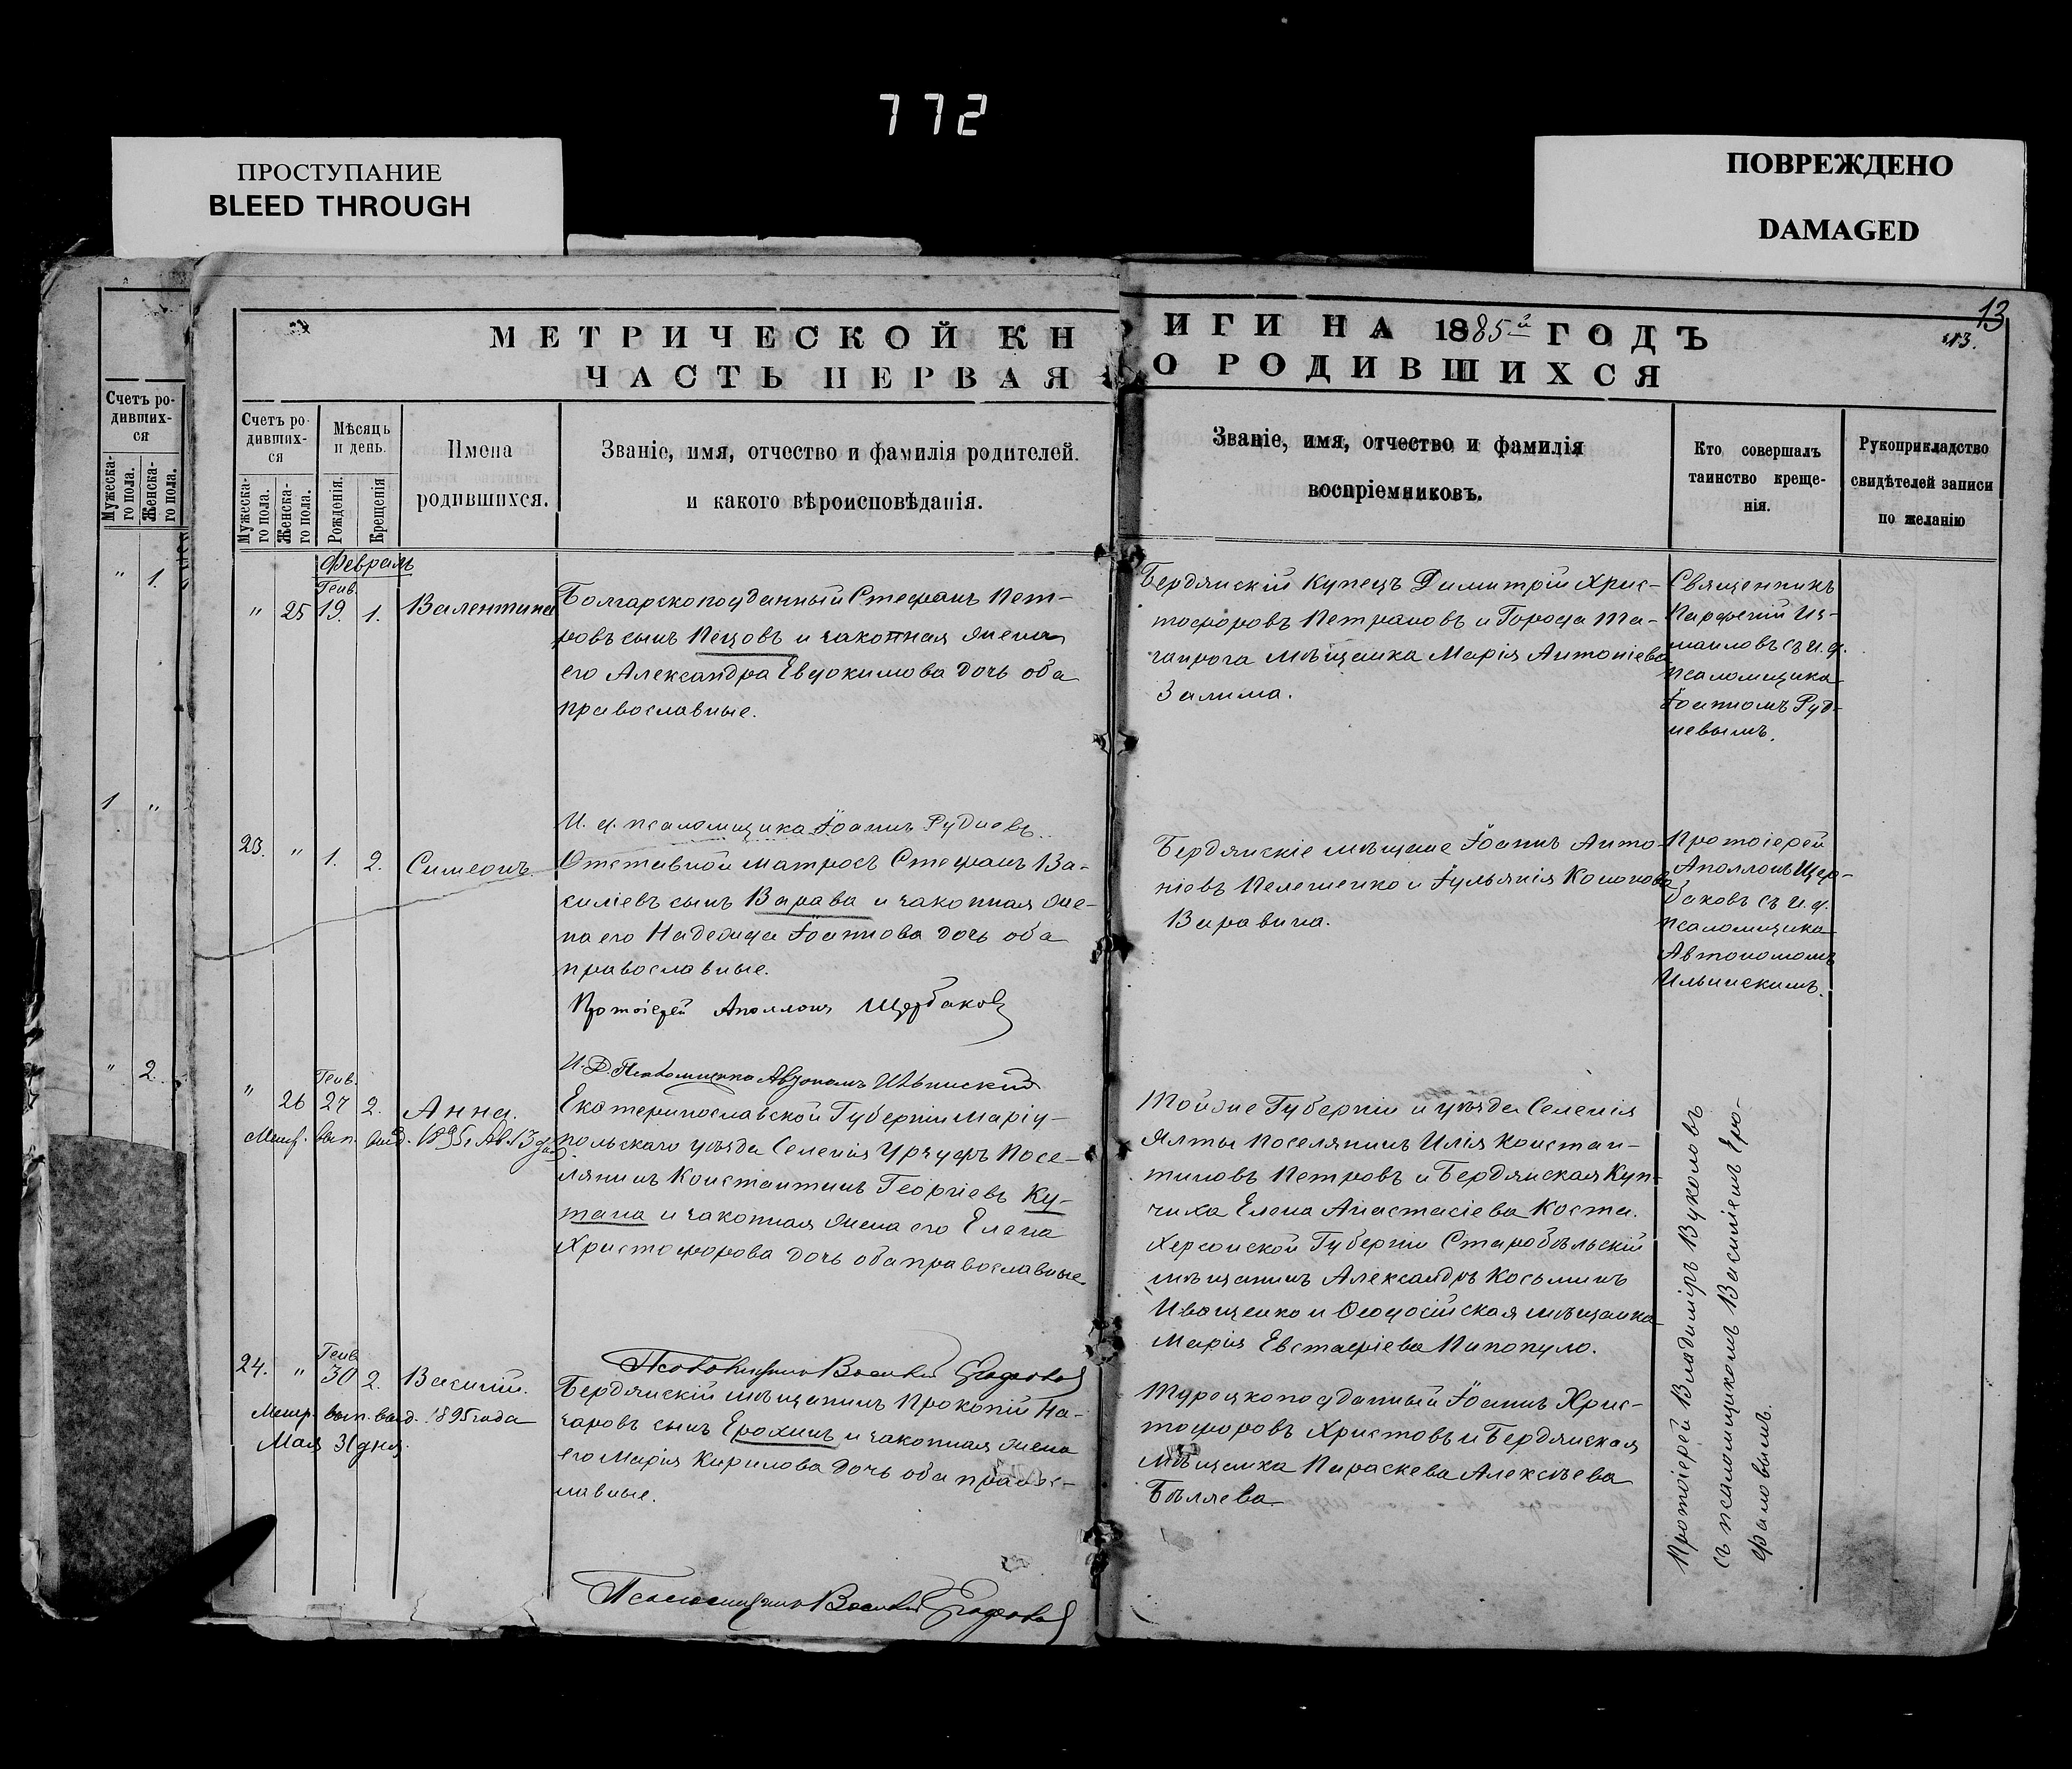 772
ПРОСТУПАНИЕ
BLEED THROUGH
ПОВРЕЖДЕНО
DAMAGED
13
МЕТРИЧЕСКОЙ КН
ИГИ НА 1885й ГОДЪ
13.
ЧАСТЬ ПЕРВАЯ
О РОДИВШИХСЯ
Счетъ ро-
дивших-
ся
Мужеска-
го пола.
Женска-
го пола.
" 1.
1 "
" 2
Счетъ ро-
дивших-
ся
Мужеска-
го пола.
Женска-
го пола.
Мѣсяць
и день.
Рожденія.
Крещенія
Имена
родившихся.
Званіе, имя, отчество и фамилія родителей.
и какого вѣроисповѣданія.
Званіе, имя, отчество и фамилія
воспріемниковъ.
Кто совершалъ
таинство креще-
нія.
Рукоприкладство
свидѣтелей записи
по желанію
Февраль
Генв.
" 25 19. 1. Валентина
Болгарскоподданный Стефанъ Пет-
ровъ сынъ Пецовъ и законная жена
его Александра Евдокимова дочь оба
православные.
Бердянскій купецъ Димитрій Хрис-
тофоровъ Петрановъ и Города Та-
ганрога мѣщанка Марія Антоніева
Залима.
Священникъ
Парфеній Из-
маиловъ съ и. д.
псаломщика
Іоанномъ Руд-
невымъ.
И. д. псаломщика Іоаннъ Рудневъ.
23. " 1. 2. Симеонъ.
Отставной матросъ Стефанъ Ва-
силіевъ сынъ Варава и законная же-
на его Надежда Іоаннова дочь оба
православные.
Протоіерей Аполлонъ Щербаковъ
Бердянскіе мѣщане Іоаннъ Анто-
ніевъ Пелешенко и Іульянія Кононова
Варавина.
Протоіерей
Аполлонъ Щер-
баковъ съ и. д.
псаломщика
Автономомъ
Ильинскимъ.
И. Д. Псаломщика Автономъ Ильинскій
Генв.
" 26 27 2. Анна.
Метр. вып. выд. 1895 г. Ав. 13 дня
Екатеринославской Губерніи Маріу-
польскаго уѣзда Селенія Урзуфъ Посе-
лянинъ Константинъ Георгіевъ Ку-
тана и законная жена его Елена
Христофорова дочь оба православные
Тойже Губерніи и уѣзда Селенія
Ялты поселянинъ Илія Констан-
тиновъ Петровъ и Бердянская Куп-
чиха Елена Анастасіева Коста.
Херсонской Губерніи Старобѣльскій
мѣщанинъ Александръ Косьминъ
Иващенко и Ѳеодосійская мѣщанка
Марія Евстафіева Пипопуло.
Псаломщикъ Василій Ерофаловъ
Генв
24. " 30 2. Василій.
Метр. вып. выд. 1895 года
Мая 31 дня.
Бердянскій мѣщанинъ Прокопій На-
заровъ сынъ Ерохинъ и законная жена
его Марія Кирилова дочь оба правос-
лавные.
Турецкоподданный Іоаннъ Хрис-
тофоровъ Христовъ и Бердянская
мѣщанка Параскева Алексѣева
Бѣляева.
Протоіерей Владиміръ Вуколовъ
съ псаломщикомъ Василіемъ Еро-
фаловымъ.
Псаломщикъ Василій Ерофаловъ